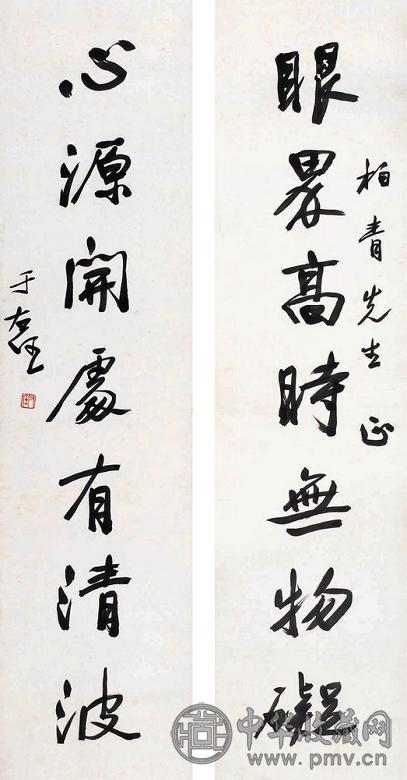 眼界高時無物礙
柏青先生正
心源開處有清波
于右任
中华收藏网
www.pmv.cn